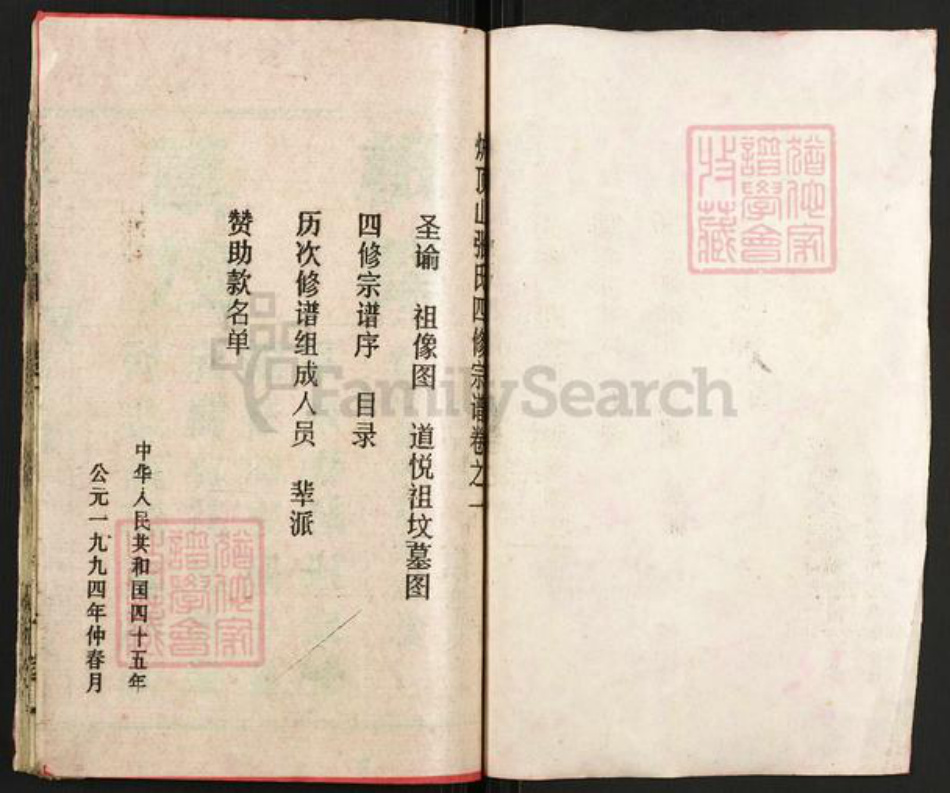 顶山张氏四修宗谱卷之一
圣谕 祖像图 道悦祖坟墓图
四修宗谱序 目录
历次修谱组成人员 辈派
赞助款名单
中华人民共和国四十五年
公元一九九四年仲春月
FamilySearch
猶他家
譜學會
收藏
猶他家
譜學會
收藏